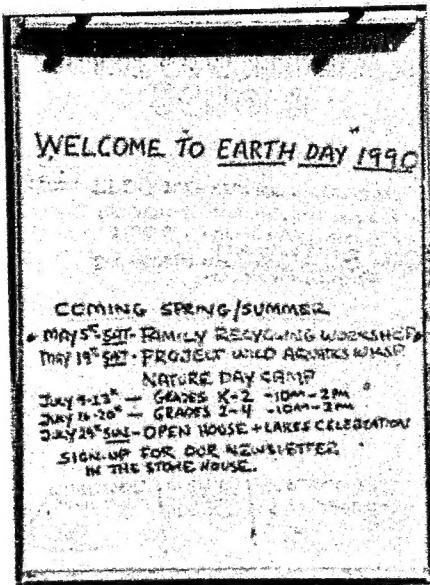 WELCOME TO EARTH DAY 1990
COMING SPRING/SUMMER
• MAY 5TH SAT - FAMILY RECYCLING WORKSHOP •
MAY 19TH SAT - PROJECT WILD AQUATICS WKSP
NATURE DAY CAMP
JULY 9-13TH — GRADES K-2 -10AM-2PM
JULY 16-20TH — GRADES 2-4 -10AM-2PM
JULY 29TH SUN - OPEN HOUSE + LAKES CELEBRATION
SIGN-UP FOR OUR NEWSLETTER
IN THE STONE HOUSE.